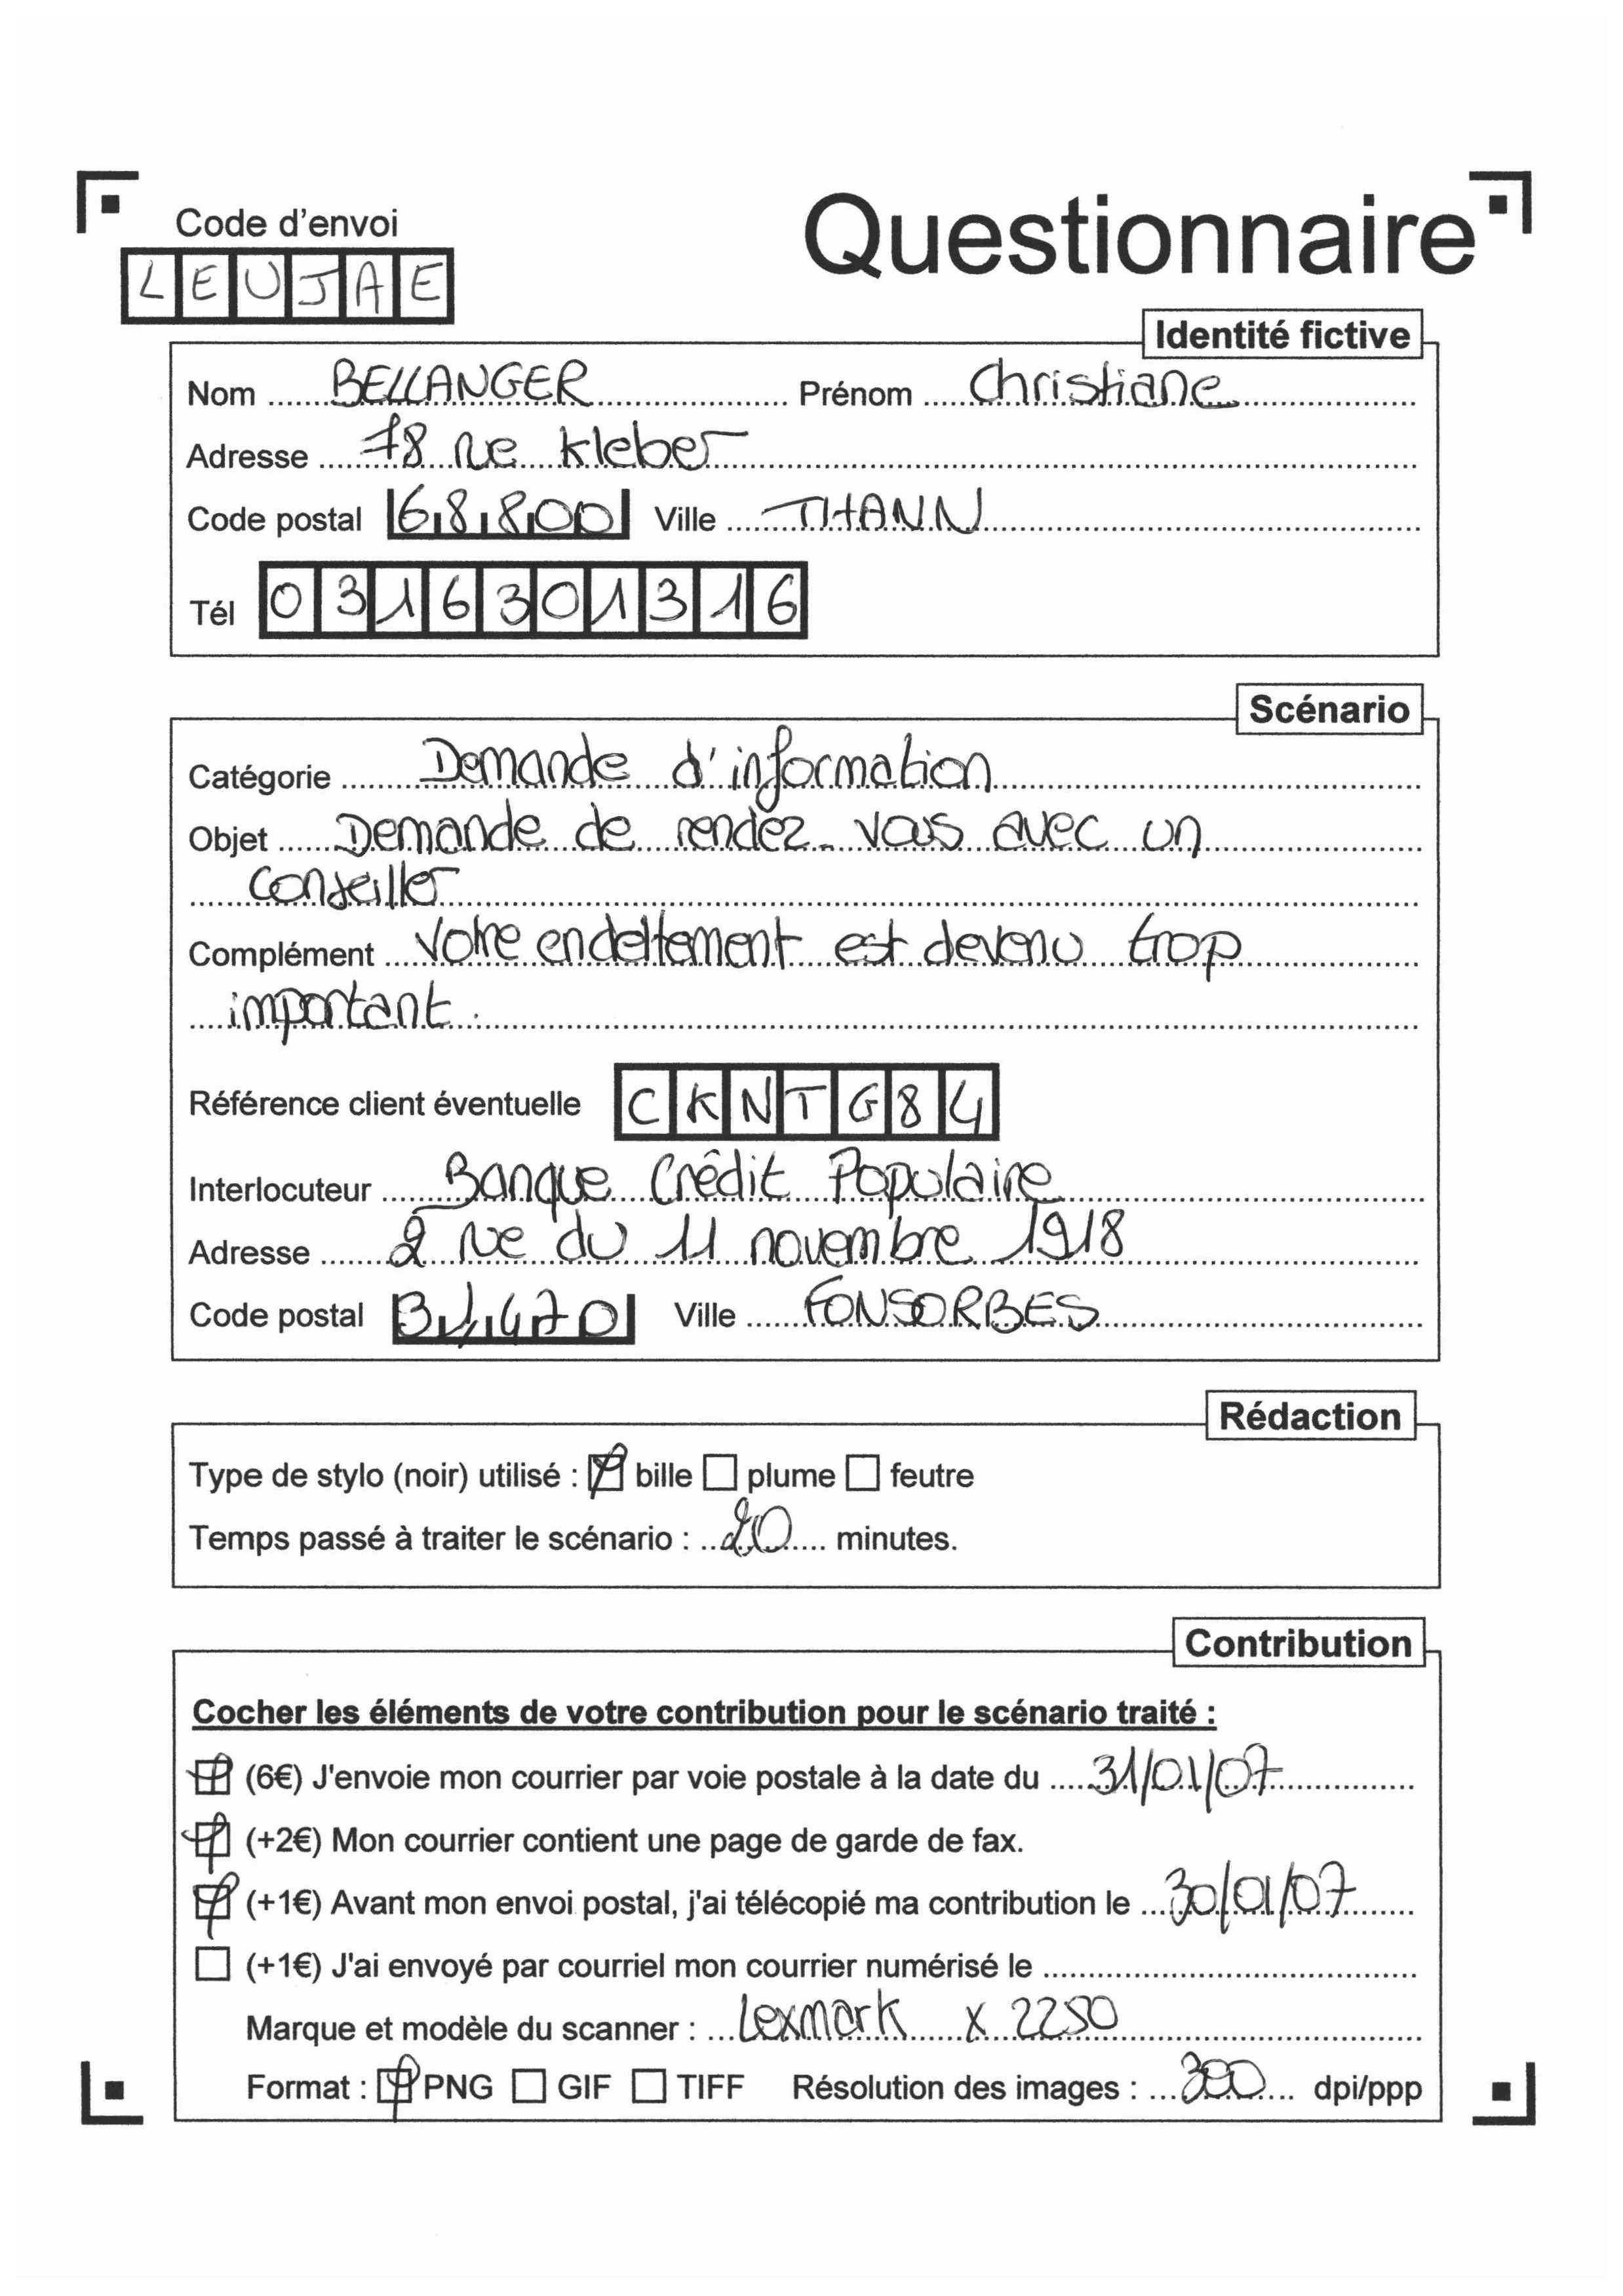 Code d'envoi
Questionnaire
LEUJAE
Identité fictive
Nom BELLANGER Prénom Christiane
Adresse 78 rue Kleber
Code postal 68800 Ville THANN
Tél 0316301316
Scénario
Catégorie Demande d'information
Objet Demande de rendez-vous avec un
conseiller
Complément Votre endettement est devenu trop
important.
Référence client éventuelle CKNTG84
Interlocuteur Banque Crédit Populaire
Adresse 2 rue du 11 novembre 1918
Code postal 31470 Ville FONSORBES
Rédaction
Type de stylo (noir) utilisé : bille plume feutre
Temps passé à traiter le scénario : 20 minutes.
Contribution
Cocher les éléments de votre contribution pour le scénario traité :
(6€) J'envoie mon courrier par voie postale à la date du 31/01/07
(+2€) Mon courrier contient une page de garde de fax.
(+1€) Avant mon envoi postal, j'ai télécopié ma contribution le 30/01/07
(+1€) J'ai envoyé par courriel mon courrier numérisé le
Marque et modèle du scanner : Lexmark X 2250
Format : PNG GIF TIFF Résolution des images : 300 dpi/ppp